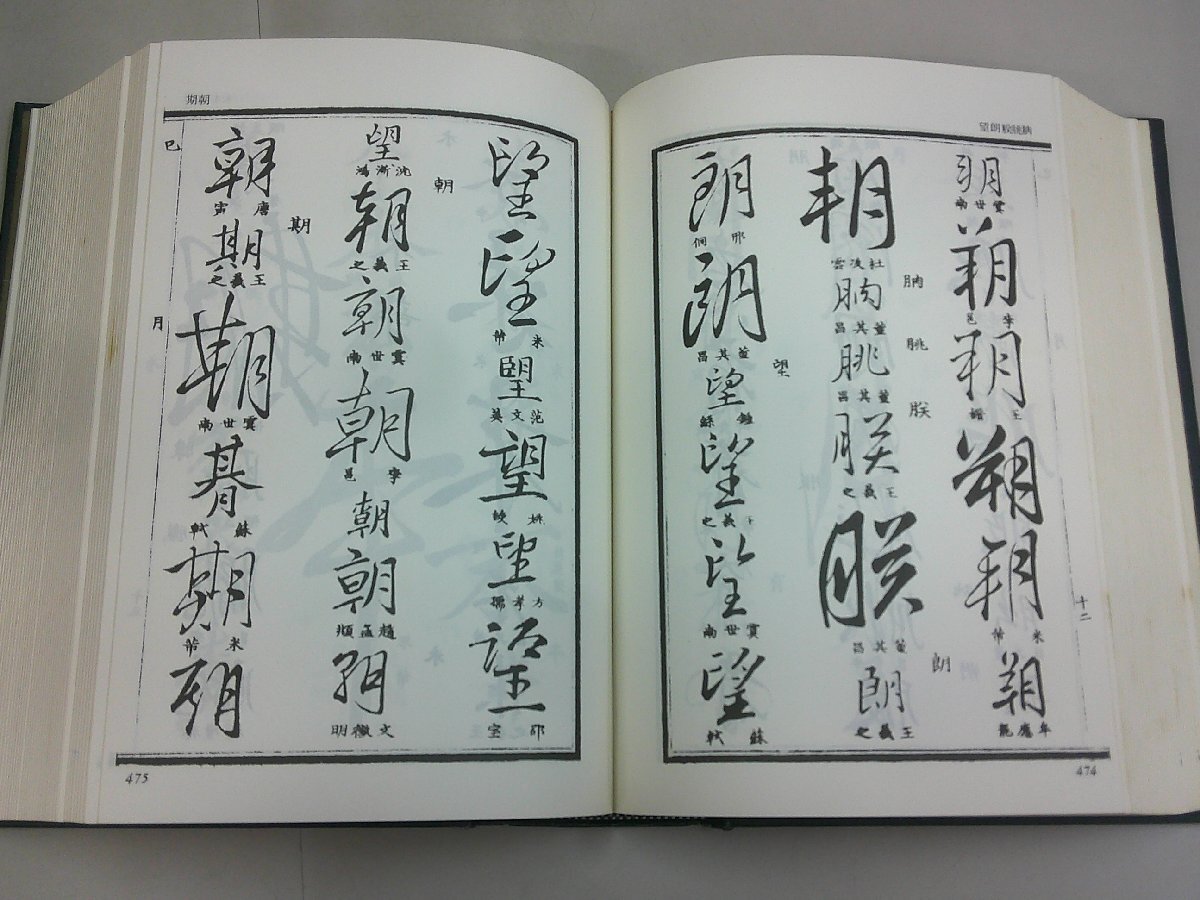 朒朓朕朗望
朔
虞世南
朔
李邕
朔
朔
朔
米芾
朔
牟應龍
十二
朔
朒
朒
董其昌
朓
朓
董其昌
朕
朕
王羲之
朕
董其昌
朗
朗
王羲之
朗
邢侗
朗
董其昌
望
望
鍾繇
望
王羲之
望
虞世南
望
蘇軾
474
朝期
望
望
米芾
望
范文英
望
姚綬
望
方孝孺
望
邵宝
望
朝
朝
王羲之
朝
虞世南
朝
李邕
朝
朝
趙孟頫
朝
文徵明
朝
唐寅
期
期
王羲之
期
虞世南
朞
蘇軾
期
米芾
期
巳
月
475